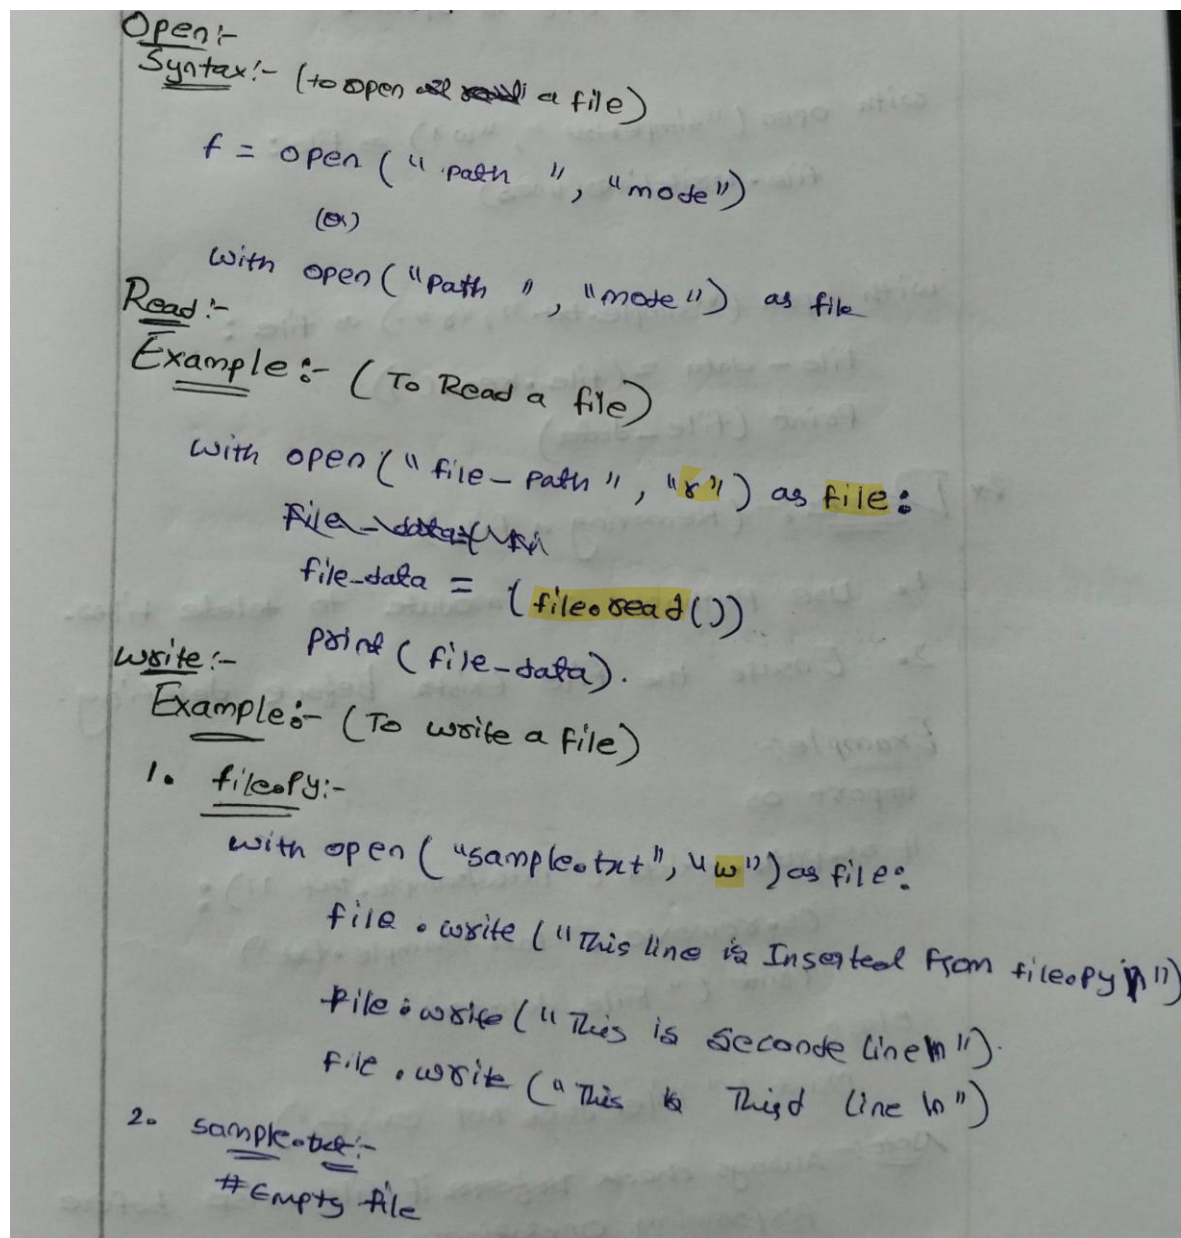 Open:-
Syntax:- (to open a file)
f = open (" path ", "mode")
(or)
with open ("path ", "mode") as file
Read:-
Example:- (To Read a file)
with open ("file-path", "r") as file:
file_data = (file.read())
print (file_data).
write:-
Example:- (To write a file)
1. file.py:-
with open ("sample.txt", "w") as file:
file.write ("This line is Inserted from file.py \n")
file.write ("This is Seconde line \n").
file.write ("This is Third line \n")
2. sample.txt:-
# Empty file